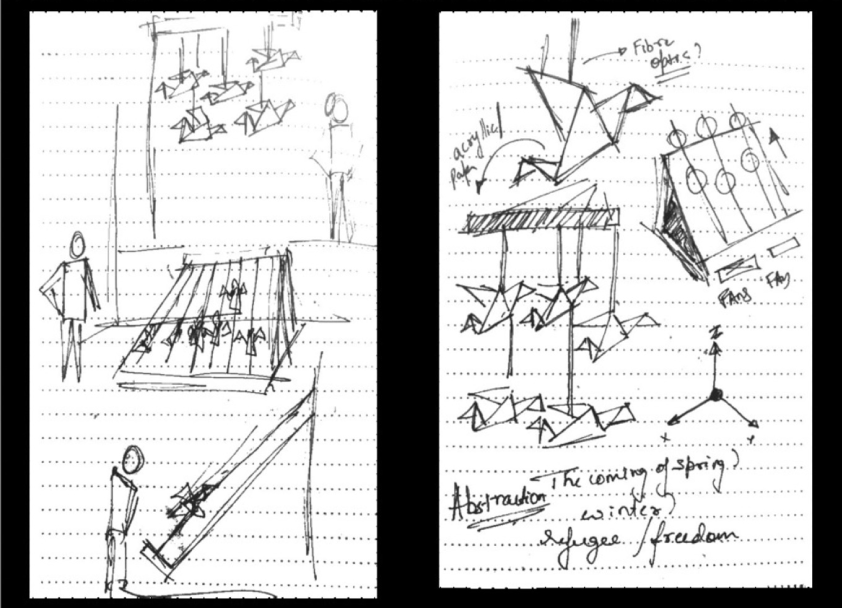 Fibre
optics)
acryllic
paper
FANS FAN
Z
X
Y
Abstraction The coming of spring)
winter)
refugee / freedom